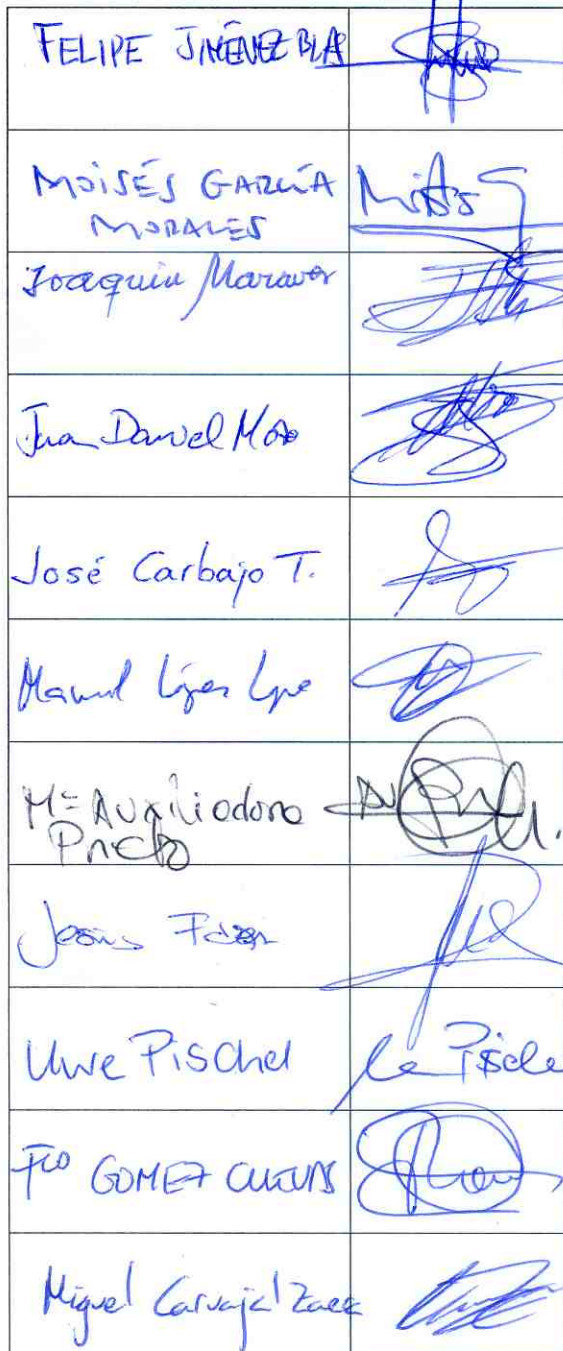 FELIPE JIMÉNEZ BLAS
MOISÉS GARCÍA
MORALES
Joaquín Maraver
Juan Daniel Mozo
José Carbajo T.
Manuel López Lope
Mª Auxiliadora
Prieto
Jesús
Uwe Pischel
Fco GOMEZ CUEVAS
Miguel Carvajal Zaera